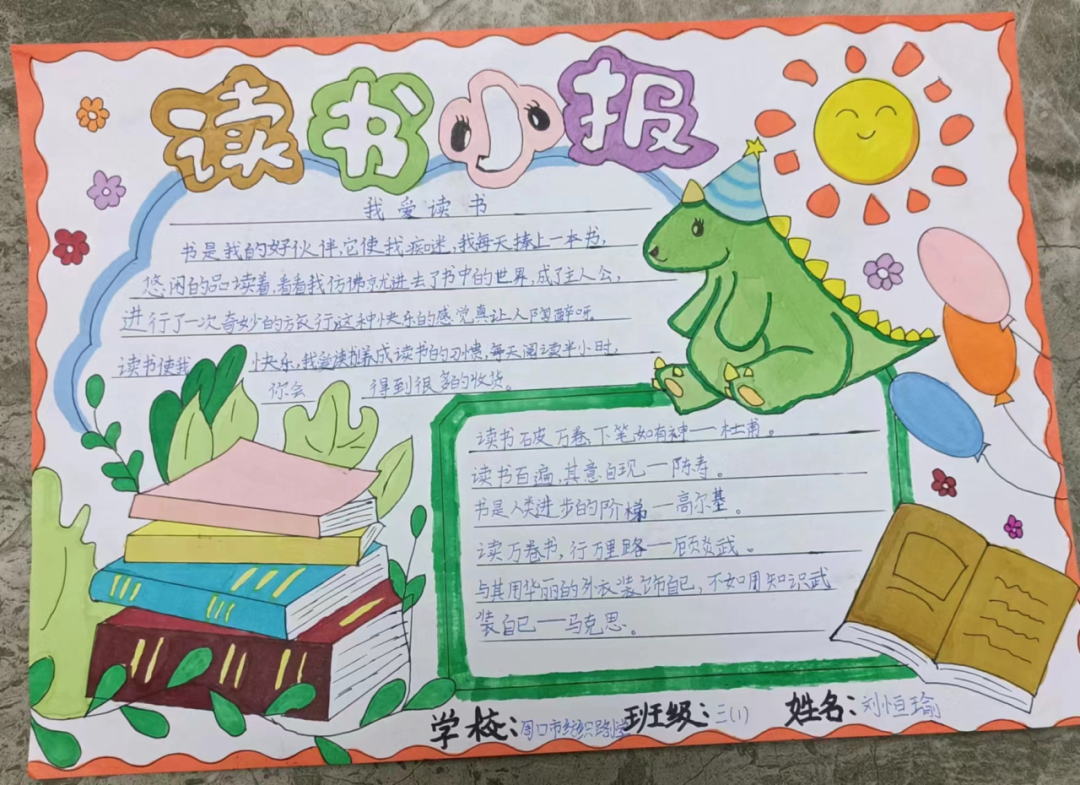 读书小报
我爱读书
书是我的好伙伴,它使我痴迷,我每天捧上一本书,
悠闲的品读着,看着我仿佛就进去了书中的世界,成了主人公,
进行了一次奇妙的旅行,这种快乐的感觉真让人陶醉呀
读书使我 快乐,我爱读书,养成读书的习惯,每天阅读半小时,
你会 得到很多的收货。
读书破万卷,下笔如有神——杜甫。
读书百遍,其意自现——陈寿。
书是人类进步的阶梯——高尔基。
读万卷书,行万里路——顾炎武。
与其用华丽的外衣装饰自己,不如用知识武
装自己——马克思。
学校:周口市纺织路小学 班级:三(1) 姓名:刘恒瑜